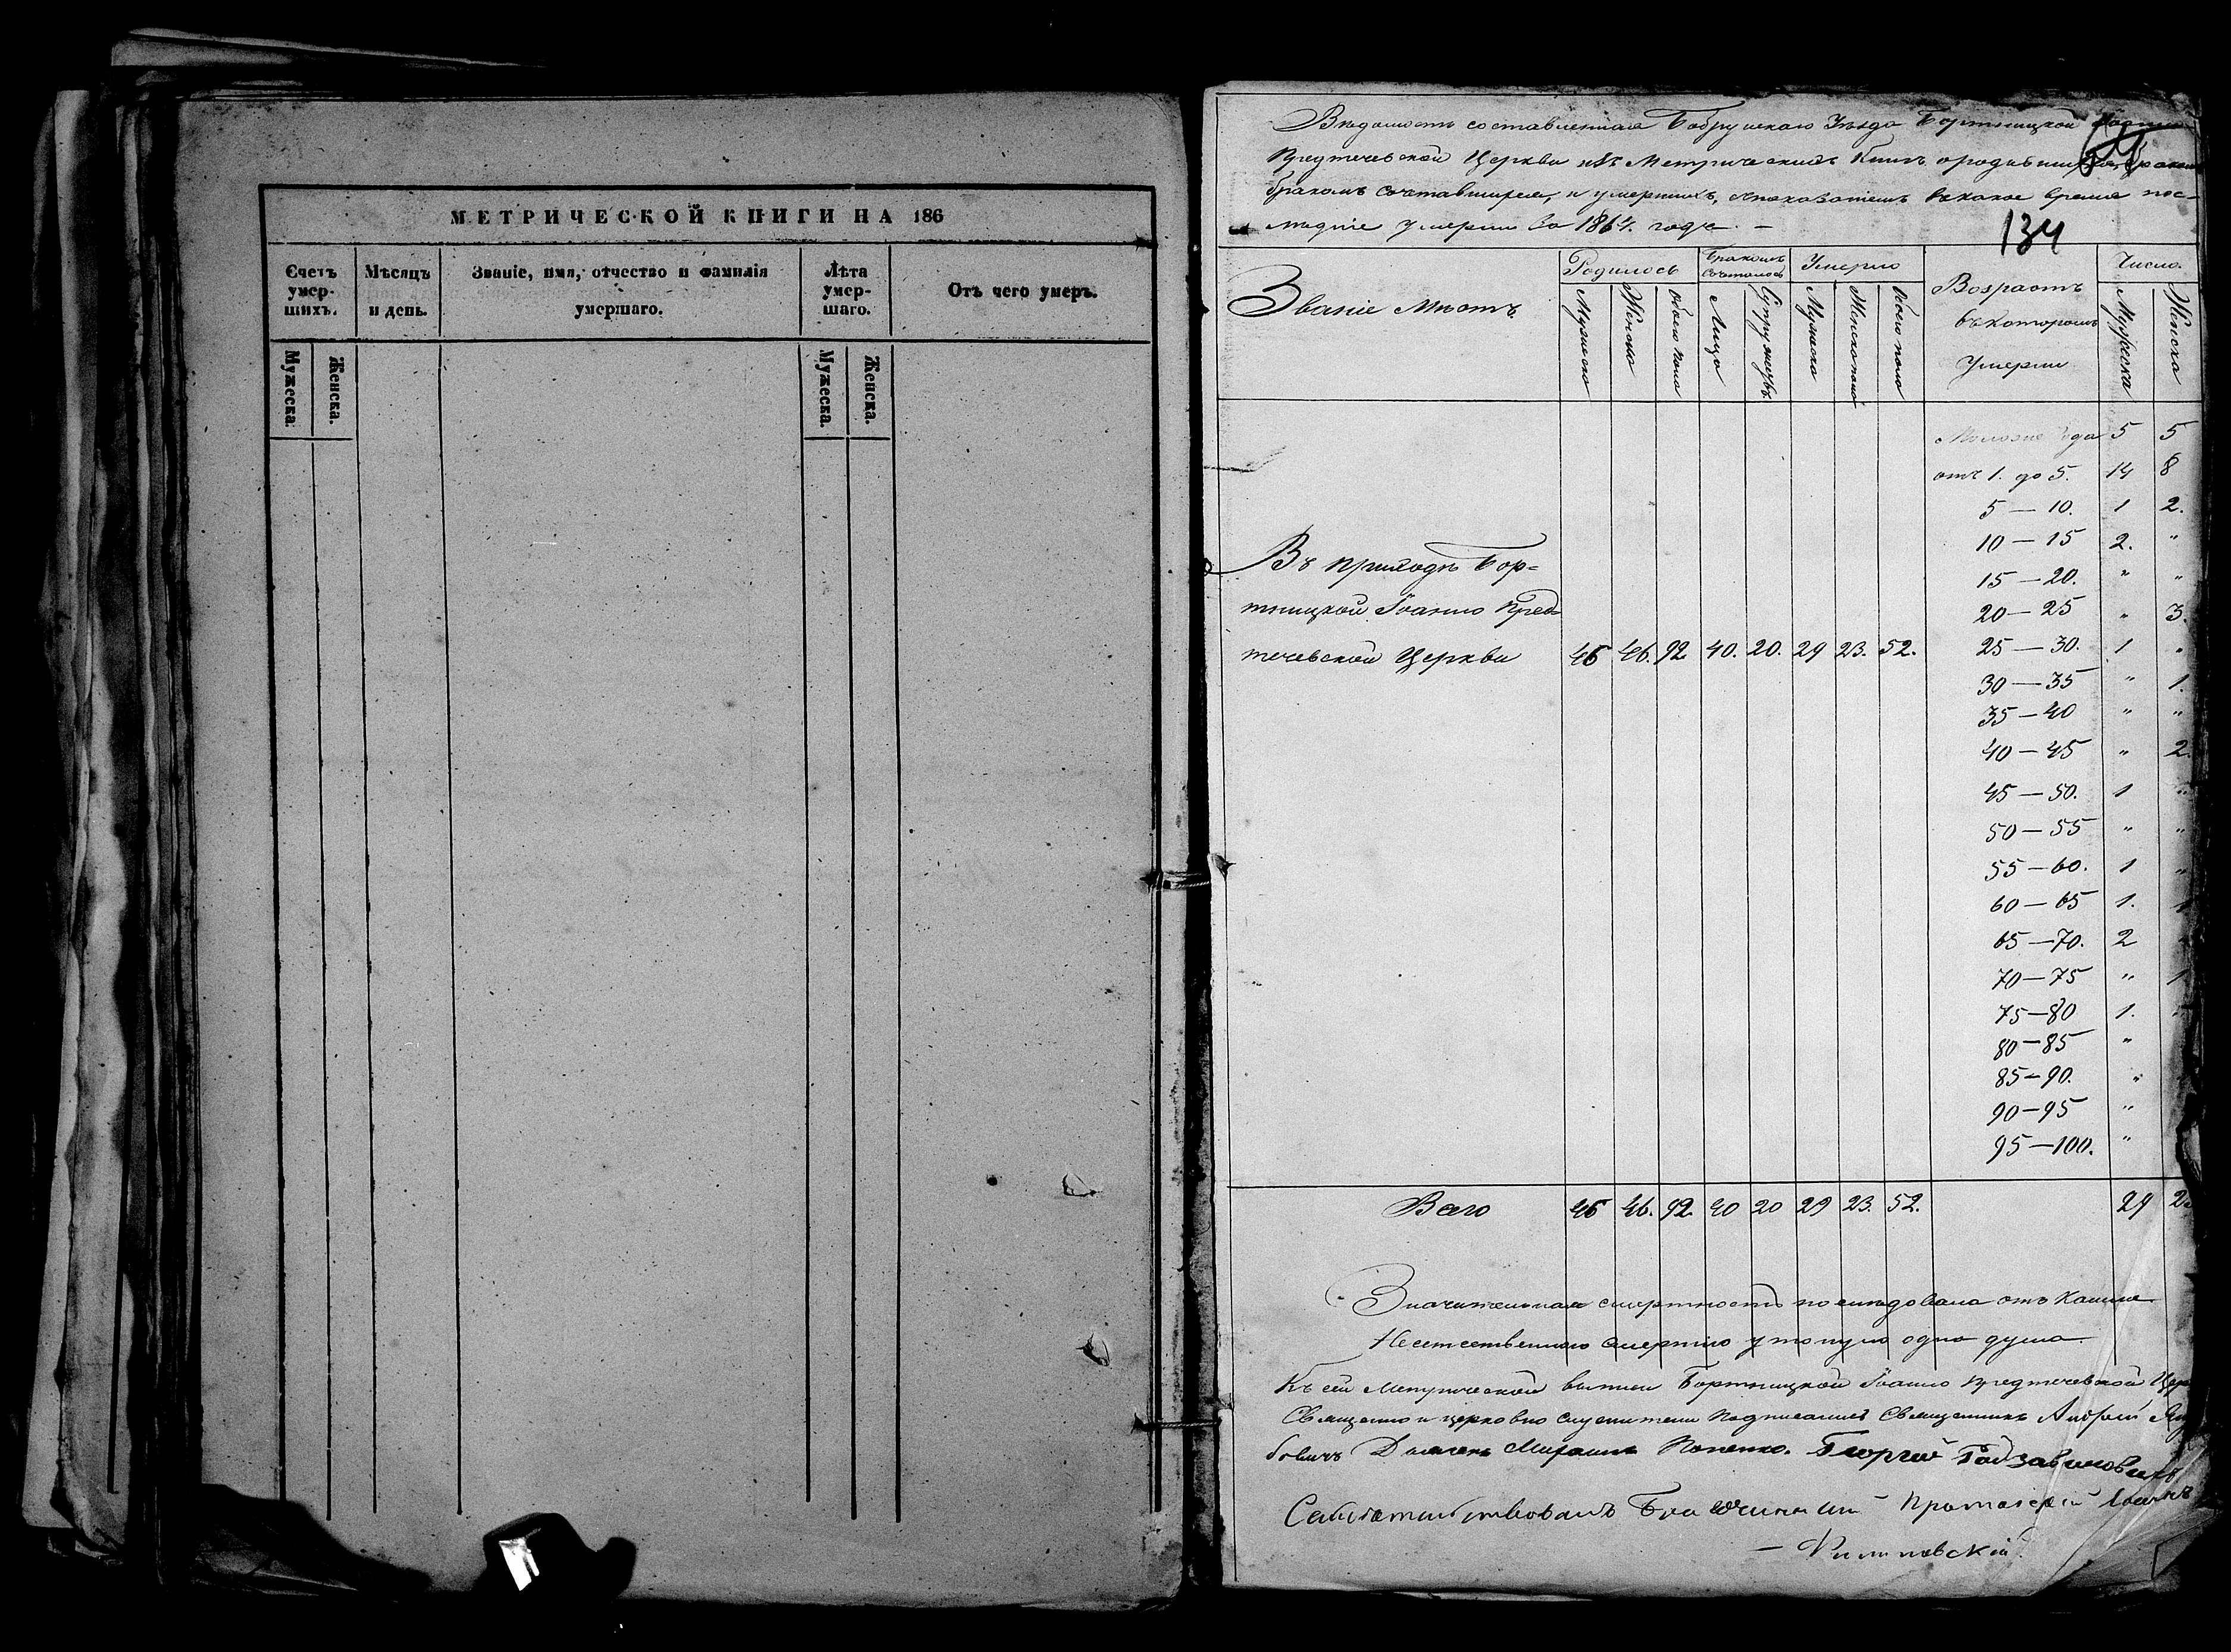 МЕТРИЧЕСКОЙ КНИГИ НА 186
Счетъ умер-шихъ.
Мужеска.
Женска.
Мѣсяцъ и день.
Званіе, имя, отчество и фамилія умершаго.
Лѣта умер-шаго.
Мужеска.
Женска.
Отъ чего умеръ.
Вѣдомость составленная Бобруйскаго Уѣзда Бортницкой
Предтечевской Церкви изъ Метрическихъ Книгъ о родившихся,
бракомъ сочетавшихся, и умершихъ, съ показаніемъ въ какое время пос-
лѣдніе умерли за 1864. годъ. —
134
Званіе Мѣстъ
Родилось
Мужеска
Женска
Обоего пола
Бракомъ Сочеталось
Лицъ
Супружествъ
Умерло
Мужеска
Женска пола
Обоего пола
Возрастъ
въ которомъ
Умерли
Число
Мужеска
Женска
Моложе года 5 5
отъ 1. до 5. 14 8
5 — 10. 1 2.
10 — 15 2. "
15 — 20. " "
20 — 25 " 3.
25 — 30. 1 "
30 — 35 " 1.
35 — 40 " "
40 — 45 " 2.
45 — 50. 1 "
50 — 55 " "
55 — 60. 1 "
60 — 65 1. 1
65 — 70. 2
70 — 75 " 1
75 — 80 1.
80 — 85 "
85 — 90. "
90 — 95 "
95 — 100. "
Въ приходѣ Бор-
тницкой Іоанно Пред
течевской Церкви 46 46. 92. 40. 20. 29 23. 52.
Всего 46 46. 92. 40 20 29 23. 52. 29
Значительная смертность послѣдовала отъ кашля
Неестественною смертію утонула одна душа.
Къ сей Метрической выписи Бортницкой Іоанно Предтечевской Цер
Священно и церковно служители подписались Священникъ Андрей
Дьячекъ Михаилъ Попенко. Георгій
Свидѣтельствовалъ Благочинный Протоіерей Іоаннъ